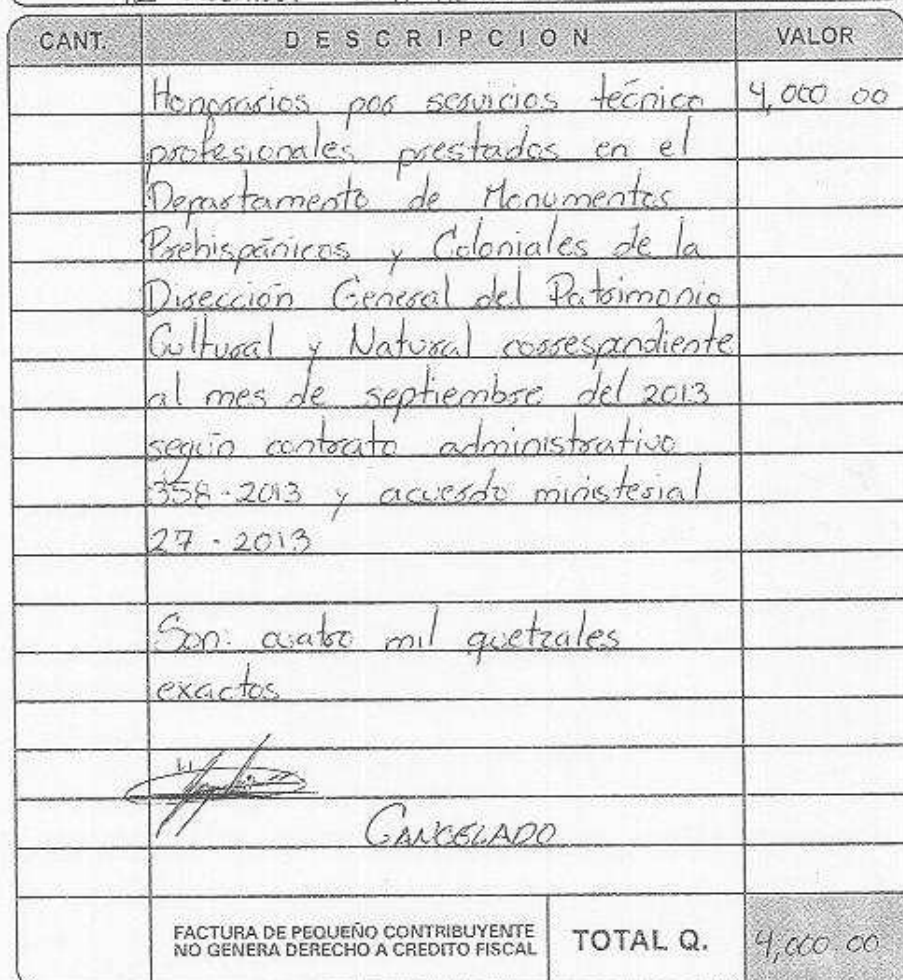 CANT. DESCRIPCION VALOR
Honorarios por servicios técnico 4,000 00
profesionales prestados en el
Departamento de Monumentos
Prehispánicos y Coloniales de la
Dirección General del Patrimonio
Cultural y Natural correspondiente
al mes de septiembre del 2013
según contrato administrativo
358-2013 y acuerdo ministerial
27-2013
Son: cuatro mil quetzales
exactos
CANCELADO
FACTURA DE PEQUEÑO CONTRIBUYENTE
NO GENERA DERECHO A CREDITO FISCAL
TOTAL Q. 4,000 00